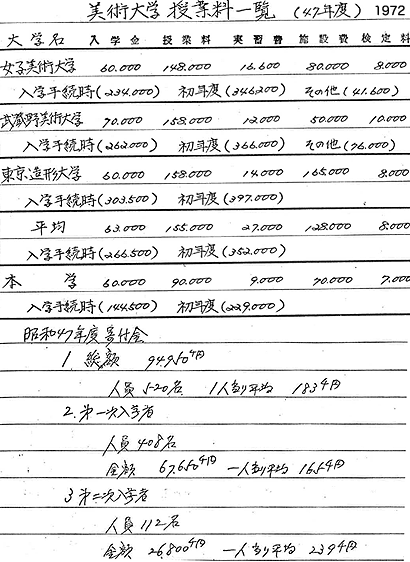 美術大学授業料一覧 (47年度) 1972
大学名 入学金 授業料 実習費 施設費 検定料
女子美術大学 60.000 148.000 16.600 80.000 8.000
入学手続時(234.000) 初年度(346.200) その他(41.600)
武蔵野美術大学 70.000 158.000 12.000 50.000 10.000
入学手続時(262.000) 初年度(366.000) その他(76.000)
東京造形大学 60.000 158.000 14.000 165.000 8.000
入学手続時(303.500) 初年度(397.000)
平均 63.000 155.000 27.000 128.000 8.000
入学手続時(266.500) 初年度(352.000)
本学 60.000 90.000 9.000 70.000 7.000
入学手続時(144.500) 初年度(229.000)
昭和47年度寄付金
1. 総額 94.950千円
人員 520名 1人当り平均 183千円
2. 第一次入学者
人員 408名
金額 67.650千円 一人当り平均 165千円
3 第二次入学者
人員 112名
金額 26.800千円 一人当り平均 239千円